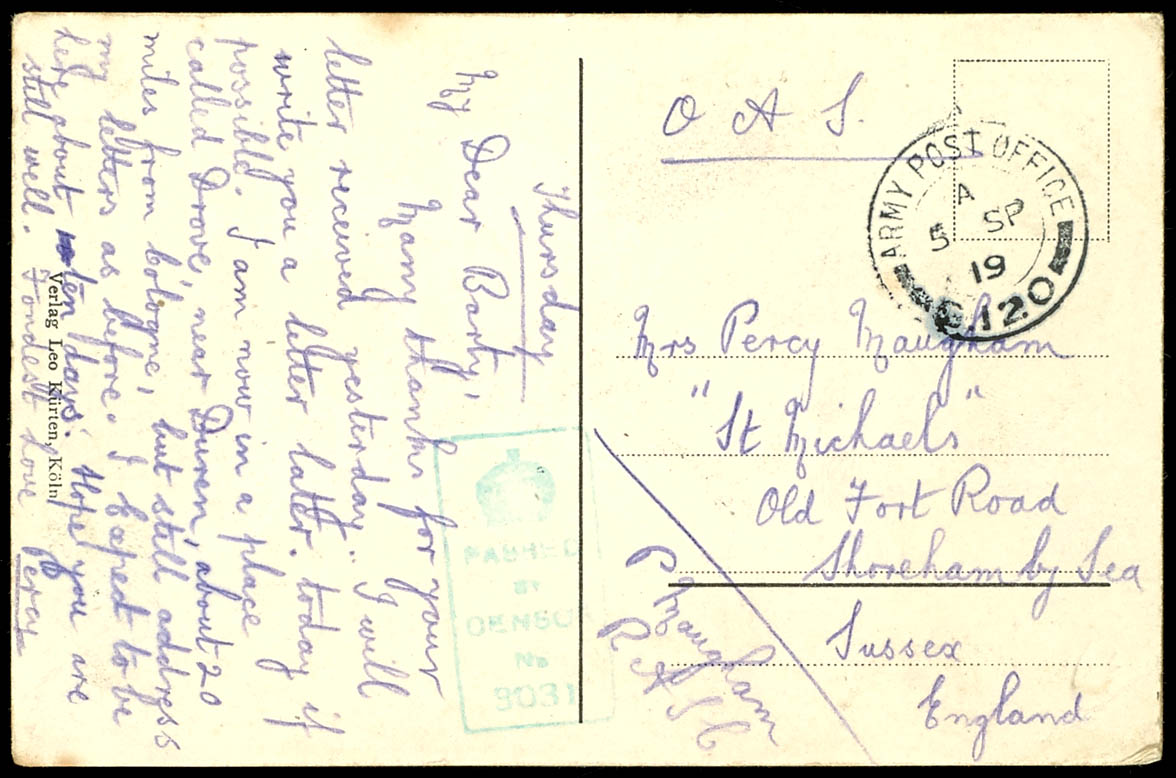 Thursday
My Dear Barty,
Many thanks for your
letter received yesterday. I will
write you a letter later. today if
possible. I am now in a place
called Drove, near Duren, about 20
miles from bologne, but still address
my letters as before. I expect to be
here about ten days. Hope you are
still well. Fondest Love Percy
Verlag Leo Kürten, Köln
PASSED
BY
CENSOR
No
3031
O A S.
ARMY POST OFFICE
A
5 SP
19
S.120
Mrs Percy Maugham
"St Michaels"
Old Fort Road
Shoreham by Sea
Sussex
England
P Maugham
R A S C